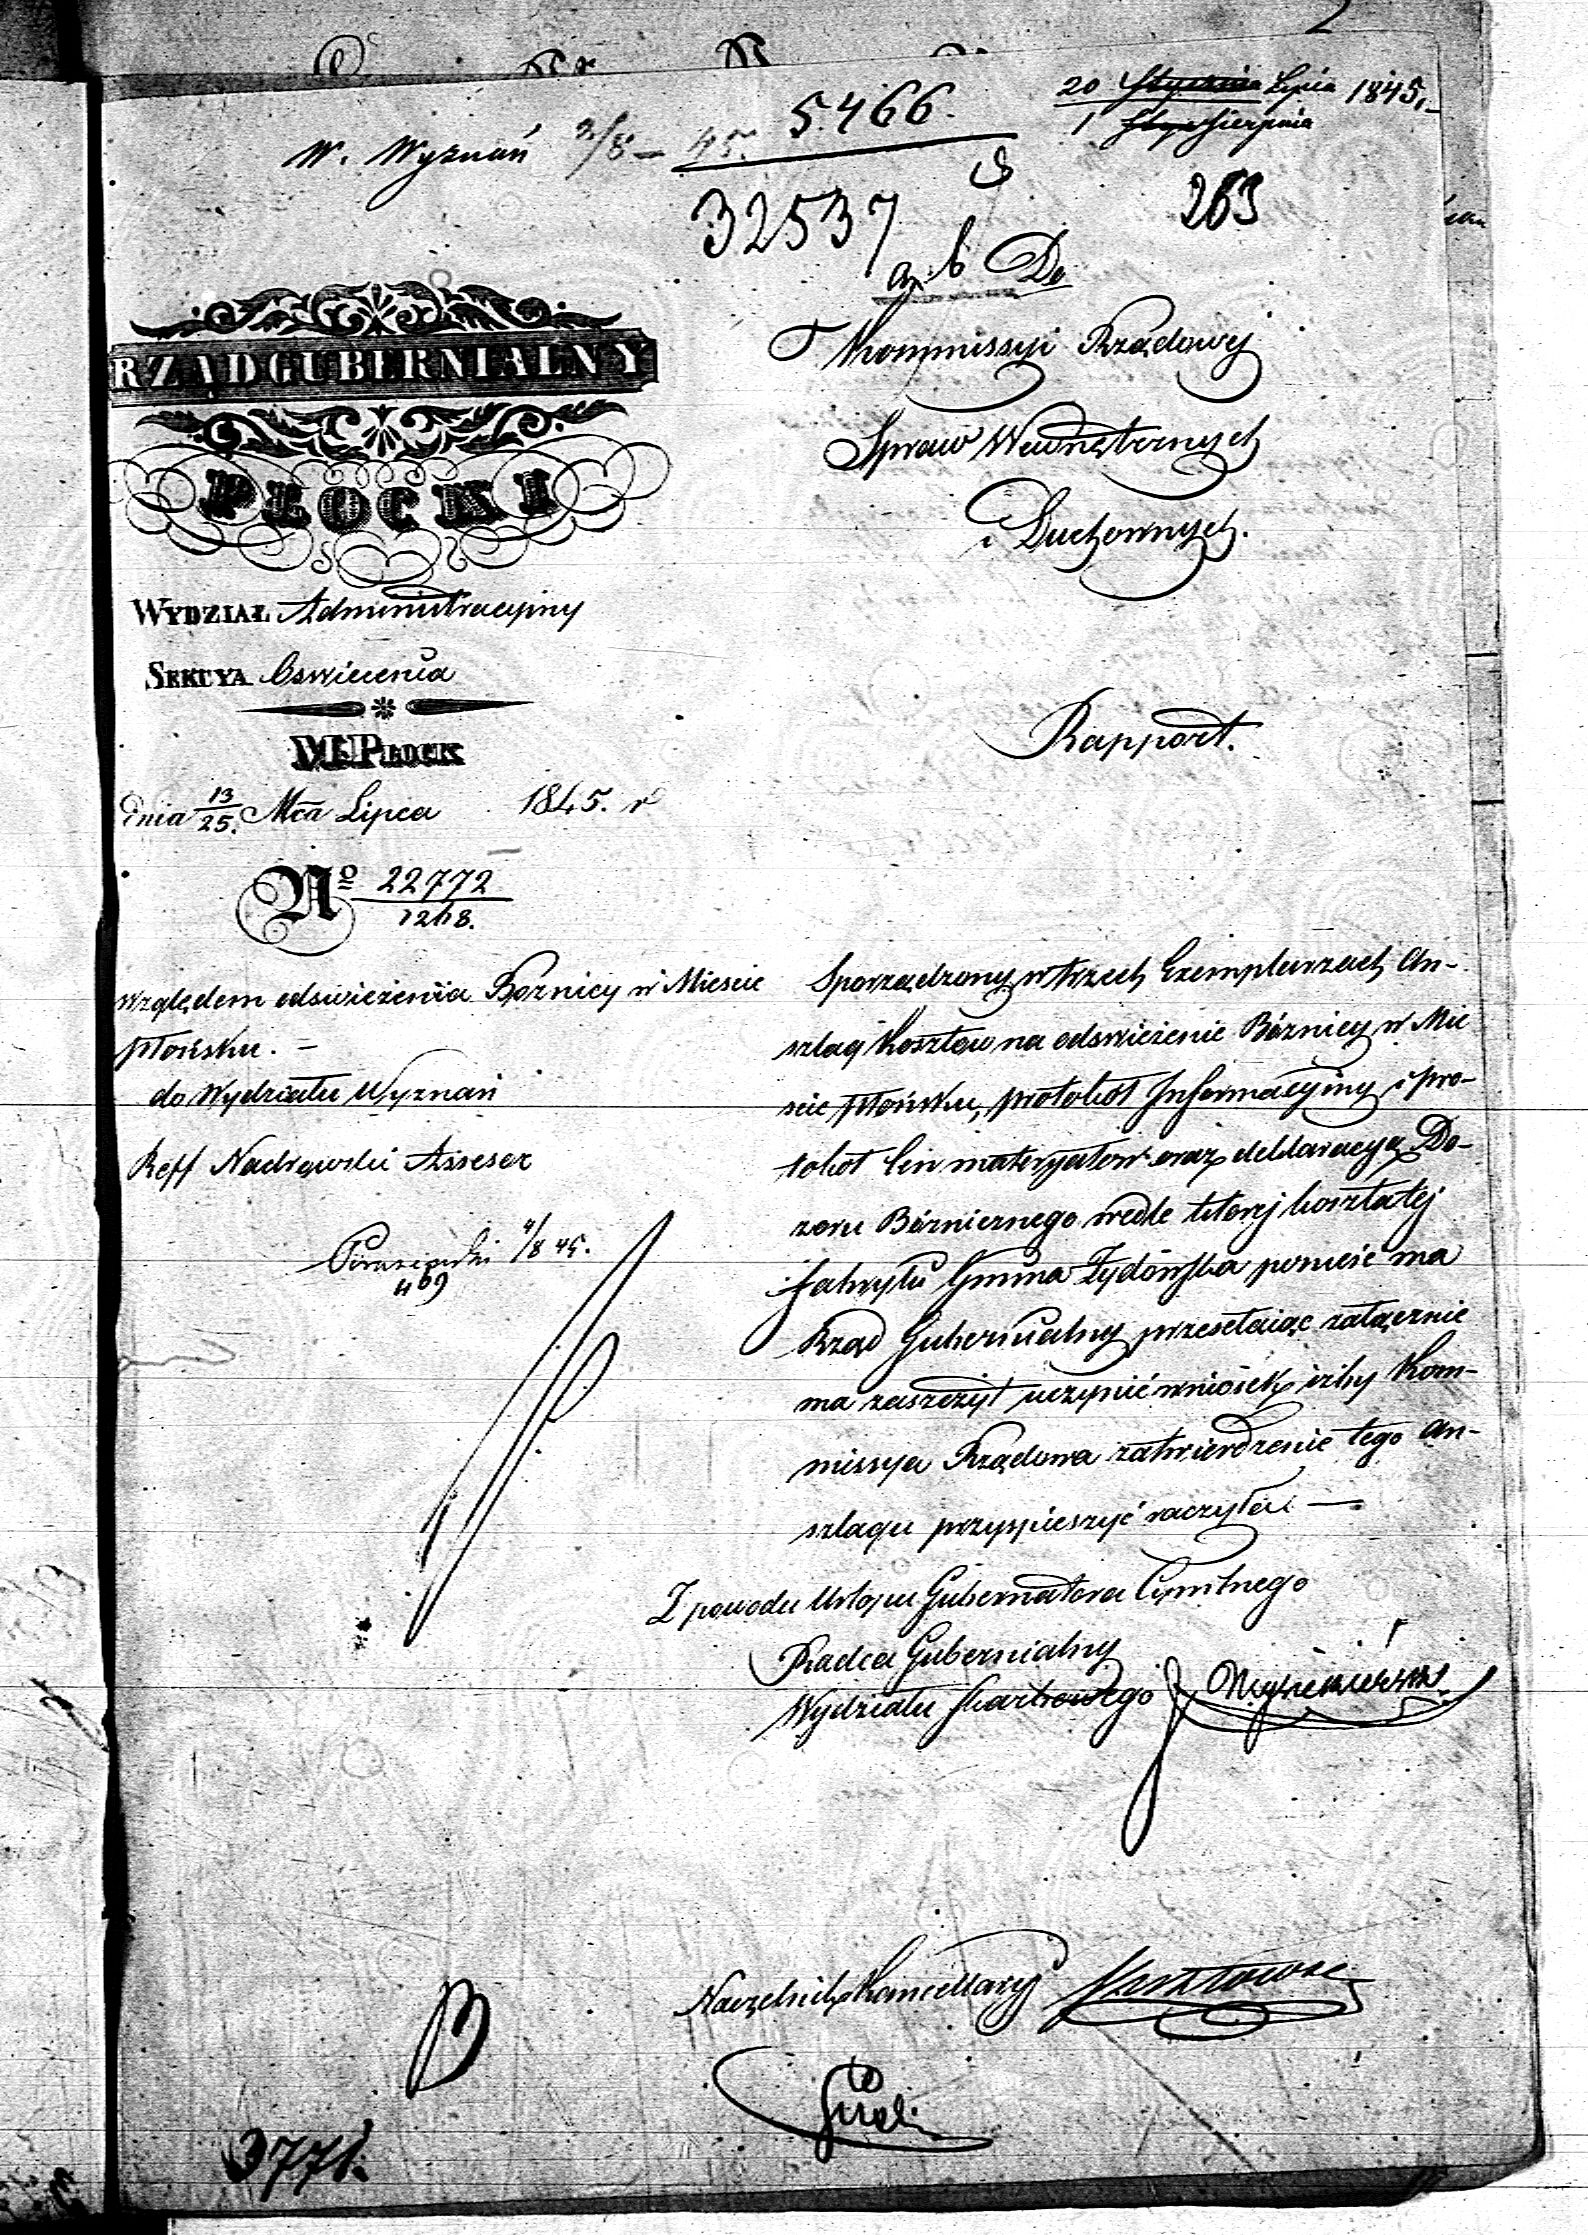 2
5466.
20 Stycznia Lipca 1845.
1 Sierpnia
W. Wyznań 2/8 – 45.
32537
263
a. b. Do
Kommissyi Rządowej
Spraw Wewnętrznych
i Duchownych.
RZĄD GUBERNIALNY
PŁOCKI
WYDZIAŁ Administracyiny
SEKCYA Oswiecenia
W PŁOCK
dnia 13/25. Mca Lipca 1845. r
Rapport.
No 22772
1248.
względem odswieżenia Bożnicy w Miescie
Płońsku. –
do Wydziału Wyznań
Reff Nadrowski Assesor
4/8 45.
469
Sporządzony w trzech Exemplarzach An-
szlag Kosztow na odswieżenie Bóżnicy w Mie
scie Płońsku, protokół Informacyiny i pro-
tokół Cen materyałow oraz deklaracyą Do-
zoru Bóżnicznego wedle ktorej koszta tej
fabryki Gmina Żydówska ponieść ma
Rząd Gubernialny przesełaiąc załącznie
ma zaszczyt uczynić wniosek iżby Kom-
missya Rządowa zatwierdzenie tego an-
szlagu przyspieszyć raczyła –
Z powodu Urlopu Gubernatora Cywilnego
Radca Gubernialny
Wydziału Skarbowego J.
Naczelnik Kancellaryi
3771.